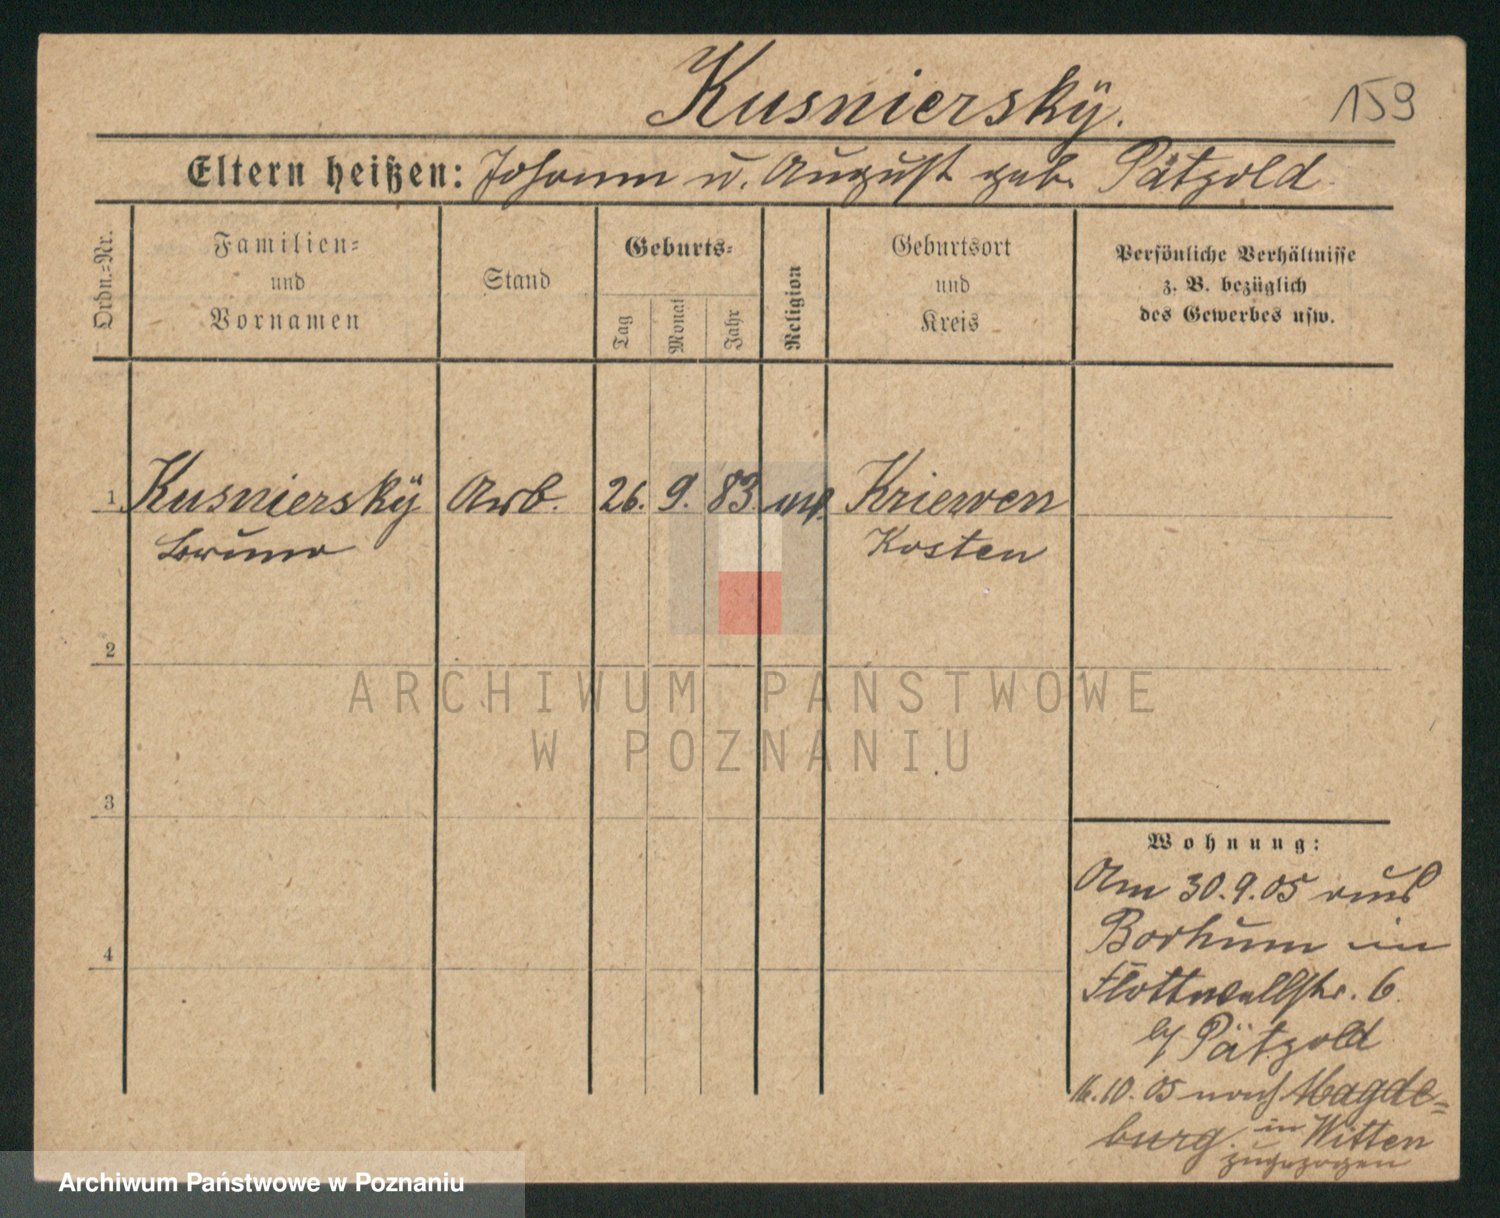 Kusnierskÿ.
159
Eltern heißen: Johann u. August geb. Pätzold
Ordn.=Nr.
Familien=
und
Vornamen
Stand
Geburts=
Tag
Monat
Jahr
Religion
Geburtsort
und
Kreis
Persönliche Verhältnisse
z. B. bezüglich
des Gewerbes usw.
1 Kusnierskÿ Arb. 26. 9. 83. Kriewen
Bruno Kosten
2
3
4
ARCHIWUM PAŃSTWOWE
W POZNANIU
Wohnung:
Am 30.9.05 aus
Borkum in
Flottwellstr. 6
b/ Pätzold
16.10.05 nach Magde=
burg. in Witten
zugezogen
Archiwum Państwowe w Poznaniu